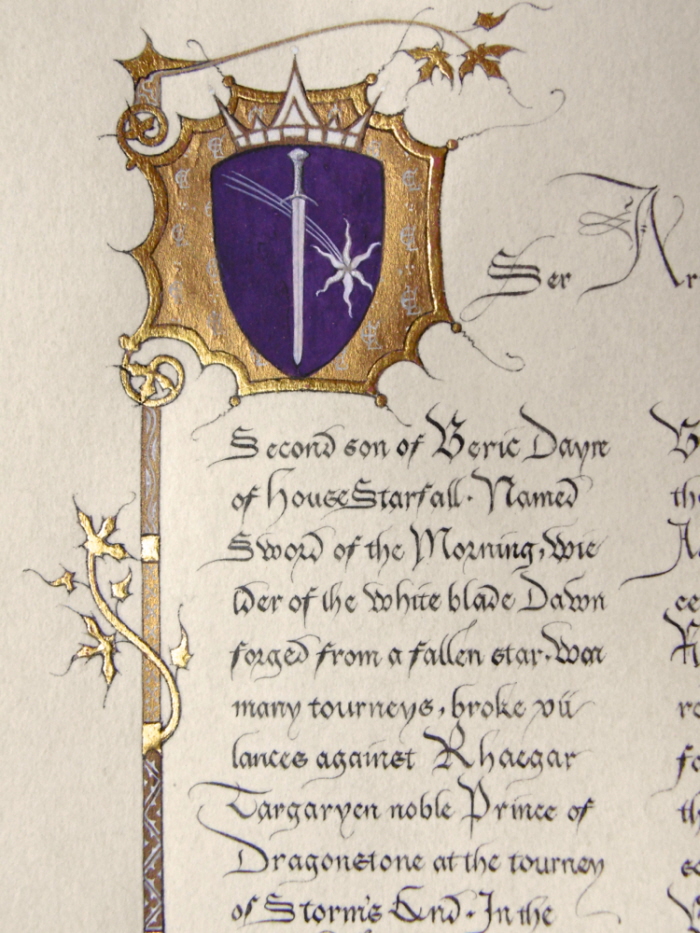 Ser Ar
Second son of Beric Dayne
of House Starfall. Named
Sword of the Morning, wie
lder of the white blade Dawn
forged from a fallen star. Won
many tourneys, broke vii
lances against Rhaegar
Targaryen noble Prince of
Dragonstone at the tourney
of Storm's End. In the